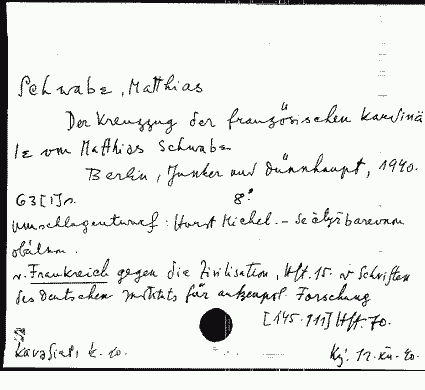 Schwabe, Matthias
Der Kreuzzug der französischen Kardinä
le von Matthias Schwabe
Berlin, Junker und Dünnhaupt, 1940.
63 [1] p. 8°
Umschlagentwurf: Horst Michel. –
obálkou.
v. Frankreich gegen die Zivilisation, Hft. 15. v Schriften
des Deutschen Instituts für aussenpol. Forschung
[145.911] Hft. 70.